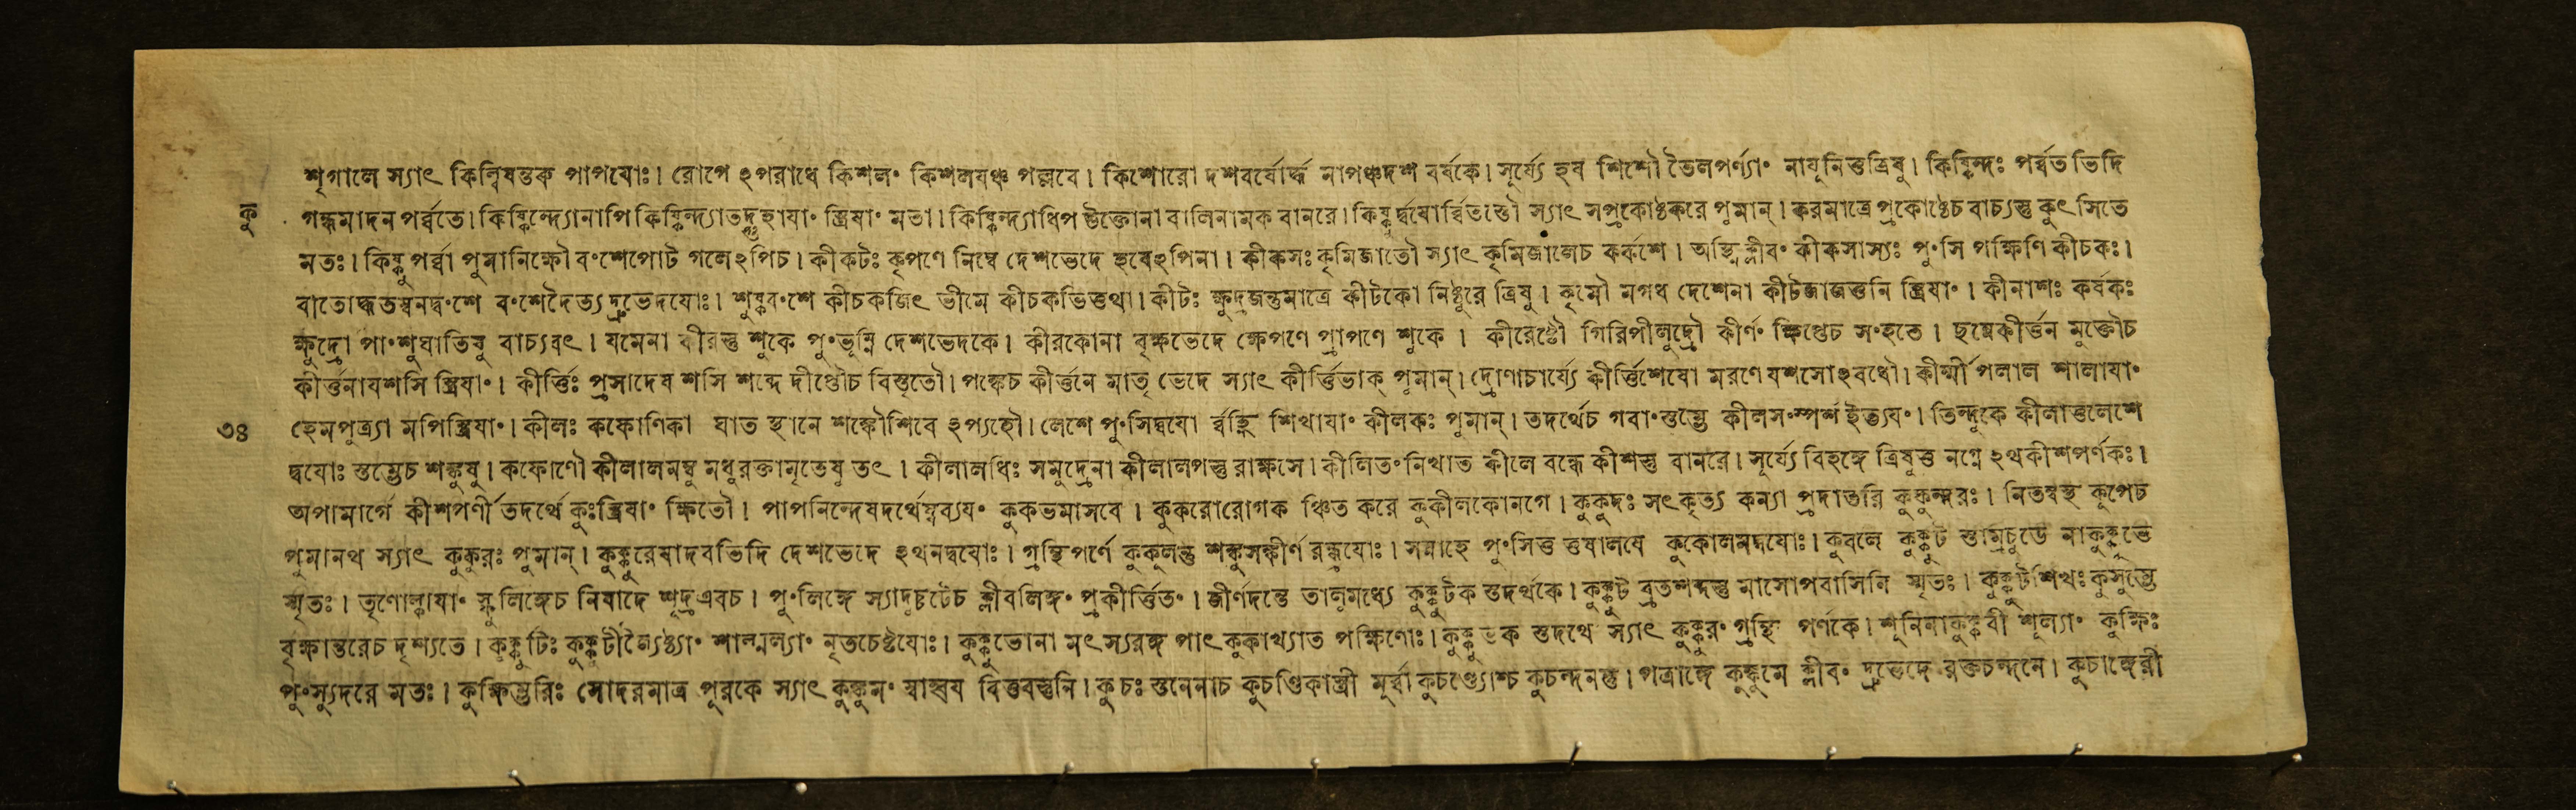 শৃগালে স্যাৎ কিল্বিষন্তক পাপযোঃ। রোগে ঽপরাধে কিশলং কিশলযঞ্চ পল্লবে। কিশোরো দশবর্ষোর্দ্ধ নাপঞ্চদশ বর্ষকে। সূর্য্যে হয শিশৌ তৈলপর্ণ্যাং নাযুনিত্তত্রিষু। কিষ্কিন্দঃ পর্ব্বত ভিদি
কু
গন্ধমাদন পর্ব্বতে। কিষ্কিন্দ্যোনাপি কিষ্কিন্দ্যাতদ্গুহাযাং স্ত্রিযাং মতা। কিষ্কিন্দ্যাধিপ উক্তোনা বালিনামক বানরে। কিষ্কুর্দ্বযোর্ব্বিতস্তৌ স্যাৎ সপ্রকোষ্ঠকরে পুমান্। করমাত্রে প্রকোষ্ঠেচ বাচ্যস্তু কুৎসিতে
মতঃ। কিষ্কুপর্ব্বা পুমানিক্ষৌ বংশেপোট গলেঽপিচ। কীকটঃ কৃপণে নিম্বে দেশভেদে হযেঽপিনা। কীকসঃ কৃমিজাতৌ স্যাৎ কৃমিজালেচ কর্কশে। অস্থ্নিক্লীবং কীকসাস্যঃ পুংসি পক্ষিণি কীচকঃ।
বাতোদ্ধতস্বনদ্বংশে বংশেদৈত্য দ্রুভেদযোঃ। শুষ্কবংশে কীচকজিৎ ভীমে কীচকভিত্তথা। কীটঃ ক্ষুদ্রজন্তুমাত্রে কীটকো নিষ্ঠুরে ত্রিষু। কৃমৌ মগধ দেশেনা কীটজাজত্তনি স্ত্রিযাং। কীনাশঃ কর্ষকঃ
ক্ষুদ্রো পাংশুঘাতিষু বাচ্যবৎ। যমেনা কীরস্তু শুকে পুংভূম্নি দেশভেদকে। কীরকোনা বৃক্ষভেদে ক্ষেপণে প্রাপণে শুকে। কীরেষ্টৌ গিরিপীলুদ্রৌ কীর্ণং ক্ষিপ্তেচ সংহতে। ছন্নেকীর্ত্তন মুক্তৌচ
কীর্ত্তনাযশসি স্ত্রিযাং। কীর্ত্তিঃ প্রসাদেয শসি শব্দে দীপ্তৌচ বিস্তৃতৌ। পঙ্কেচ কীর্ত্তনে মাতৃ ভেদে স্যাৎ কীর্ত্তিভাক্ পুমান্। দ্রোণাচার্য্যে কীর্ত্তিশেষো মরণে যশসোঽবধৌ। কীর্ম্মী পলাল শালাযাং
৩৪
হেমপুত্র্যা মপিস্ত্রিযাং। কীলঃ কফোণিকা ঘাত স্থানে শঙ্কৌশিবে ঽপ্যহৌ। লেশে পুংসিদ্বযো র্ব্বহ্নি শিখাযাং কীলকঃ পুমান্। তদর্থেচ গবাংস্তম্ভে কীলসংস্পর্শ ইত্যযং। তিন্দুকে কীলাত্তলেশে
দ্বযোঃ স্তম্ভেচ শঙ্কুষু। কফোণৌ কীলালমম্বু মধুরক্তামৃতেষু তৎ। কীলালধিঃ সমুদ্রেনা কীলালপস্তু রাক্ষসে। কীলিতং নিখাত কীলে বদ্ধে কীশস্তু বানরে। সূর্য্যে বিহঙ্গে ত্রিষুত্ত নগ্নে ঽথকীশপর্ণকঃ।
অপামার্গে কীশপর্ণী তদর্থে কুঃস্ত্রিযাং ক্ষিতৌ। পাপনিন্দেষদর্থেষ্বব্যযং কুকভমাসবে। কুকরোরোগক ঞ্চিত করে কুকীলকোনগে। কুকুদঃ সৎকৃত্য কন্যা প্রদাতরি কুকুন্দরঃ। নিতম্বস্থ কূপেচ
পুমানথ স্যাৎ কুকুরঃ পুমান্। কুক্কুরেষাদবভিদি দেশভেদে ঽথনদ্বযোঃ। গ্রন্থিপর্ণে কুকূলন্তু শঙ্কুসঙ্কীর্ণ রন্ধ্রযোঃ। সন্নাহে পুংসিত্ত ত্তষালযে কুকোলমদ্বযোঃ। কুবলে কুক্কুট স্তাম্রচূডে নাকুক্কুভে
স্মৃতঃ। তৃণোল্কাযাং স্ফুলিঙ্গেচ নিষাদে শূদ্রএবচ। পুংলিঙ্গে স্যাদ্দুচটেচ ক্লীবলিঙ্গং প্রকীর্ত্তিতং। জীর্ণদন্তে তালুমধ্যে কুক্কুটক স্তদর্থকে। কুক্কুট ব্রতশব্দস্তু মাসোপবাসিনি স্মৃতঃ। কুক্কুটশিখঃ কুসুম্ভে
বৃক্ষান্তরেচ দৃশ্যতে। কুক্কুটিঃ কুক্কুটীজ্যৈষ্ঠ্যাং শাল্মল্যাং নৃতচেষ্টযোঃ। কুক্কুভোনা মৎস্যরঙ্গ পাৎ কুকাখ্যাত পক্ষিণোঃ। কুক্কুভক স্তদর্থে স্যাৎ কুক্কুরং গ্রন্থি পর্ণকে। শুনিনাকুক্কুরী শূল্যাং কুক্ষিঃ
পুংস্যুদরে মতঃ। কুক্ষিম্ভরিঃ সোদরমাত্র পূরকে স্যাৎ কুঙ্কুমং বাহ্লব বিত্তবস্তুনি। কুচঃ স্তনেনাচ কুচণ্ডিকাস্ত্রী মূর্ব্বা কুচণ্ড্যোশ্চ কুচন্দনন্তু। পত্রাঙ্গে কুঙ্কুমে ক্লীবং দ্রুভেদে রক্তচন্দনে। কুচাঙ্গেরী